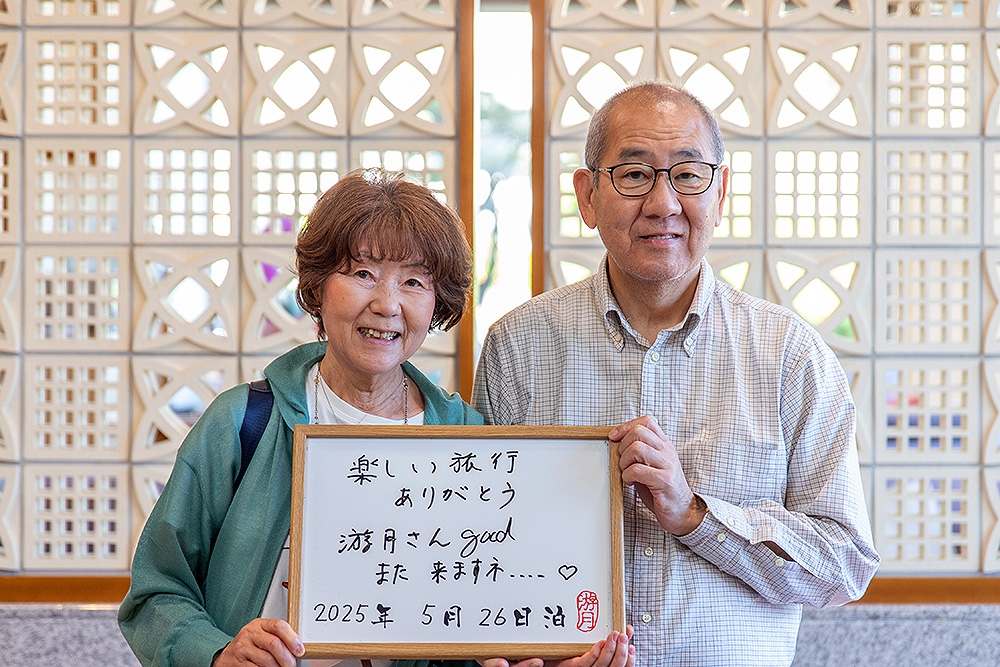 楽しい旅行
ありがとう
游月さんgood
また 来ますネ....♡
2025年 5月 26日泊
游月